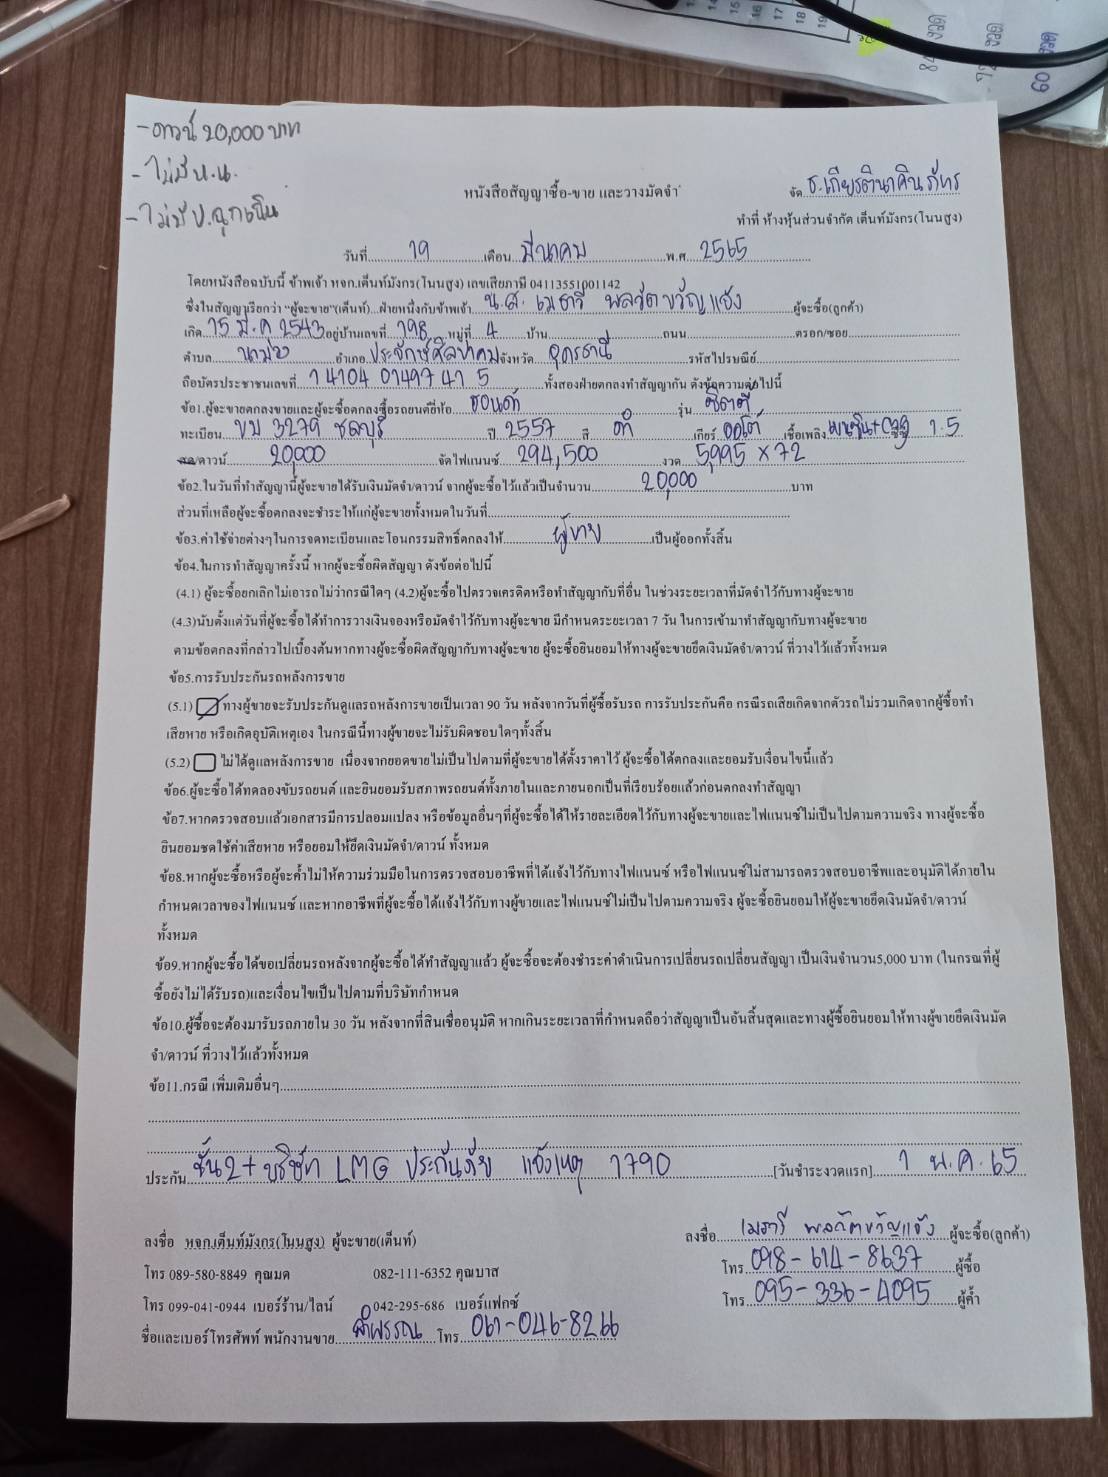 84 งวด
72 งวด
60 งวด
- ดาวน์ 20,000 บาท
- ไม่มี น.น.
- ไม่มี ป.ฉุกเฉิน
จัด ธ.เกียรตินาคินภัทร
หนังสือสัญญาซื้อ-ขาย และวางมัดจำ
ทำที่ ห้างหุ้นส่วนจำกัด เต็นท์มังกร(โนนสูง)
วันที่ 19 เดือน มีนาคม พ.ศ. 2565
โดยหนังสือฉบับนี้ ข้าพเจ้า หจก.เต็นท์มังกร(โนนสูง) เลขเสียภาษี 04113551001142
ซึ่งในสัญญาเรียกว่า "ผู้จะขาย"(เต็นท์) ฝ่ายหนึ่งกับข้าพเจ้า น.ส. เมธาวี พลวัตขวัญแจ้ง ผู้จะซื้อ(ลูกค้า)
เกิด 15 มี.ค 2543 อยู่บ้านเลขที่ 198 หมู่ที่ 4 บ้าน ถนน ตรอก/ซอย
ตำบล นาม่วง อำเภอ ประจักษ์ศิลปาคม จังหวัด อุดรธานี รหัสไปรษณีย์
ถือบัตรประชาชนเลขที่ 1 4104 01497 41 5 ทั้งสองฝ่ายตกลงทำสัญญากัน ดังข้อความต่อไปนี้
ข้อ1.ผู้จะขายตกลงขายและผู้จะซื้อตกลงซื้อรถยนต์ยี่ห้อ ฮอนด้า รุ่น ซิตตี้
ทะเบียน ขม 3279 ชลบุรี ปี 2557 สี ดำ เกียร์ ออโต้ เชื้อเพลิง เบนซิน+ ซีซี 1.5
สด/ดาวน์ 20,000 จัดไฟแนนซ์ 294,500 งวด 5,995 x 72
ข้อ2.ในวันที่ทำสัญญานี้ผู้จะขายได้รับเงินมัดจำ/ดาวน์ จากผู้จะซื้อไว้แล้วเป็นจำนวน 20,000 บาท
ส่วนที่เหลือผู้จะซื้อตกลงจะชำระให้แก่ผู้จะขายทั้งหมดในวันที่
ข้อ3.ค่าใช้จ่ายต่างๆในการจดทะเบียนและโอนกรรมสิทธิ์ตกลงให้ ผู้ขาย เป็นผู้ออกทั้งสิ้น
ข้อ4.ในการทำสัญญาครั้งนี้ หากผู้จะซื้อผิดสัญญา ดังข้อต่อไปนี้
(4.1) ผู้จะซื้อยกเลิกไม่เอารถไม่ว่ากรณีใดๆ (4.2)ผู้จะซื้อไปตรวจเครดิตหรือทำสัญญากับที่อื่น ในช่วงระยะเวลาที่มัดจำไว้กับทางผู้จะขาย
(4.3)นับตั้งแต่วันที่ผู้จะซื้อได้ทำการวางเงินจองหรือมัดจำไว้กับทางผู้จะขาย มีกำหนดระยะเวลา 7 วัน ในการเข้ามาทำสัญญากับทางผู้จะขาย
ตามข้อตกลงที่กล่าวไปเบื้องต้นหากทางผู้จะซื้อผิดสัญญากับทางผู้จะขาย ผู้จะซื้อยินยอมให้ทางผู้จะขายยึดเงินมัดจำ/ดาวน์ ที่วางไว้แล้วทั้งหมด
ข้อ5.การรับประกันรถหลังการขาย
(5.1) ทางผู้ขายจะรับประกันดูแลรถหลังการขายเป็นเวลา 90 วัน หลังจากวันที่ผู้ซื้อรับรถ การรับประกันคือ กรณีรถเสียเกิดจากตัวรถไม่รวมเกิดจากผู้ซื้อทำ
เสียหาย หรือเกิดอุบัติเหตุเอง ในกรณีนี้ทางผู้ขายจะไม่รับผิดชอบใดๆทั้งสิ้น
(5.2) ไม่ได้ดูแลหลังการขาย เนื่องจากยอดขายไม่เป็นไปตามที่ผู้จะขายได้ตั้งราคาไว้ ผู้จะซื้อได้ตกลงและยอมรับเงื่อนไขนี้แล้ว
ข้อ6.ผู้จะซื้อได้ทดลองขับรถยนต์ และยินยอมรับสภาพรถยนต์ทั้งภายในและภายนอกเป็นที่เรียบร้อยแล้วก่อนตกลงทำสัญญา
ข้อ7.หากตรวจสอบแล้วเอกสารมีการปลอมแปลง หรือข้อมูลอื่นๆที่ผู้จะซื้อได้ให้รายละเอียดไว้กับทางผู้จะขายและไฟแนนซ์ไม่เป็นไปตามความจริง ทางผู้จะซื้อ
ยินยอมชดใช้ค่าเสียหาย หรือยอมให้ยึดเงินมัดจำ/ดาวน์ ทั้งหมด
ข้อ8.หากผู้จะซื้อหรือผู้จะค้ำไม่ให้ความร่วมมือในการตรวจสอบอาชีพที่ได้แจ้งไว้กับทางไฟแนนซ์ หรือไฟแนนซ์ไม่สามารถตรวจสอบอาชีพและอนุมัติได้ภายใน
กำหนดเวลาของไฟแนนซ์ และหากอาชีพที่ผู้จะซื้อได้แจ้งไว้กับทางผู้ขายและไฟแนนซ์ไม่เป็นไปตามความจริง ผู้จะซื้อยินยอมให้ผู้จะขายยึดเงินมัดจำ/ดาวน์
ทั้งหมด
ข้อ9.หากผู้จะซื้อได้ขอเปลี่ยนรถหลังจากผู้จะซื้อได้ทำสัญญาแล้ว ผู้จะซื้อจะต้องชำระค่าดำเนินการเปลี่ยนรถเปลี่ยนสัญญา เป็นเงินจำนวน5,000 บาท (ในกรณที่ผู้
ซื้อยังไม่ได้รับรถ)และเงื่อนไขเป็นไปตามที่บริษัทกำหนด
ข้อ10.ผู้ซื้อจะต้องมารับรถภายใน 30 วัน หลังจากที่สินเชื่ออนุมัติ หากเกินระยะเวลาที่กำหนดถือว่าสัญญาเป็นอันสิ้นสุดและทางผู้ซื้อยินยอมให้ทางผู้ขายยึดเงินมัด
จำ/ดาวน์ ที่วางไว้แล้วทั้งหมด
ข้อ11.กรณี เพิ่มเติมอื่นๆ
ประกัน ชั้น2+ บริษัท LMG ประกันภัย แจ้งเหตุ 1790 [วันชำระงวดแรก] 1 พ.ค. 65
ลงชื่อ หจก.เต็นท์มังกร(โนนสูง) ผู้จะขาย(เต็นท์)
ลงชื่อ เมธาวี พลวัตขวัญแจ้ง ผู้จะซื้อ(ลูกค้า)
โทร 089-580-8849 คุณมด 082-111-6352 คุณบาส
โทร 098-614-8637 ผู้ซื้อ
โทร 099-041-0944 เบอร์ร้าน/ไลน์ 042-295-686 เบอร์แฟกซ์
โทร 095-336-4095 ผู้ค้ำ
ชื่อและเบอร์โทรศัพท์ พนักงานขาย ลำพรรณ โทร 061-046-8266